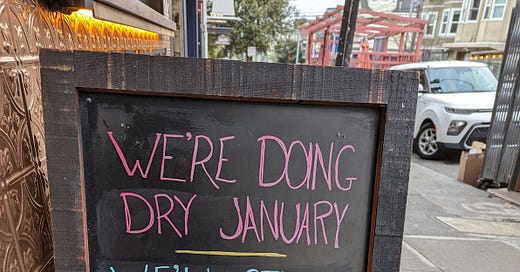 WE'RE DOING
DRY JANUARY